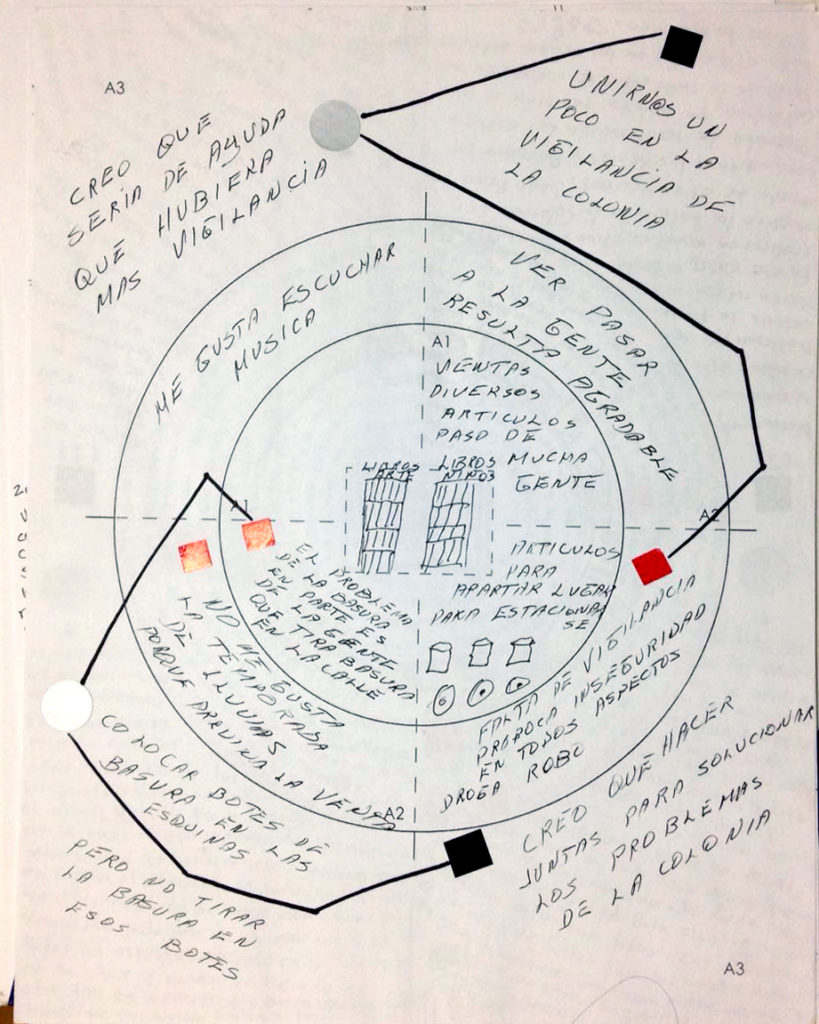 A3
CREO QUE
SERIA DE AYUDA
QUE HUBIERA
MAS VIGILANCIA
UNIRNOS UN
POCO EN LA
VIGILANCIA DE
LA COLONIA
ME GUSTA ESCUCHAR
MUSICA
VER PASAR
A LA GENTE
RESULTA AGRADABLE
A1
VENTAS
DIVERSOS
ARTICULOS
PASO DE
MUCHA
GENTE
LIBROS
ARTE
LIBROS
NIÑOS
A1
A2
ARTICULOS
PARA
APARTAR LUGAR
PARA ESTACIONAR
SE
EL PROBLEMA
DE LA BASURA
EN PARTE ES
DE LA GENTE
QUE TIRA BASURA
EN LA CALLE
NO ME GUSTA
LA TEMPORADA
DE LLUVIAS
PORQUE ARRUINA LA VENTA
FALTA DE VIGILANCIA
PROBOCA INSEGURIDAD
EN TODOS ASPECTOS
DROGA ROBO
A2
COLOCAR BOTES DE
BASURA EN LAS
ESQUINAS
PERO NO TIRAR
LA BASURA EN
ESOS BOTES
CREO QUE HACER
JUNTAS PARA SOLUCIONAR
LOS PROBLEMAS
DE LA COLONIA
A3